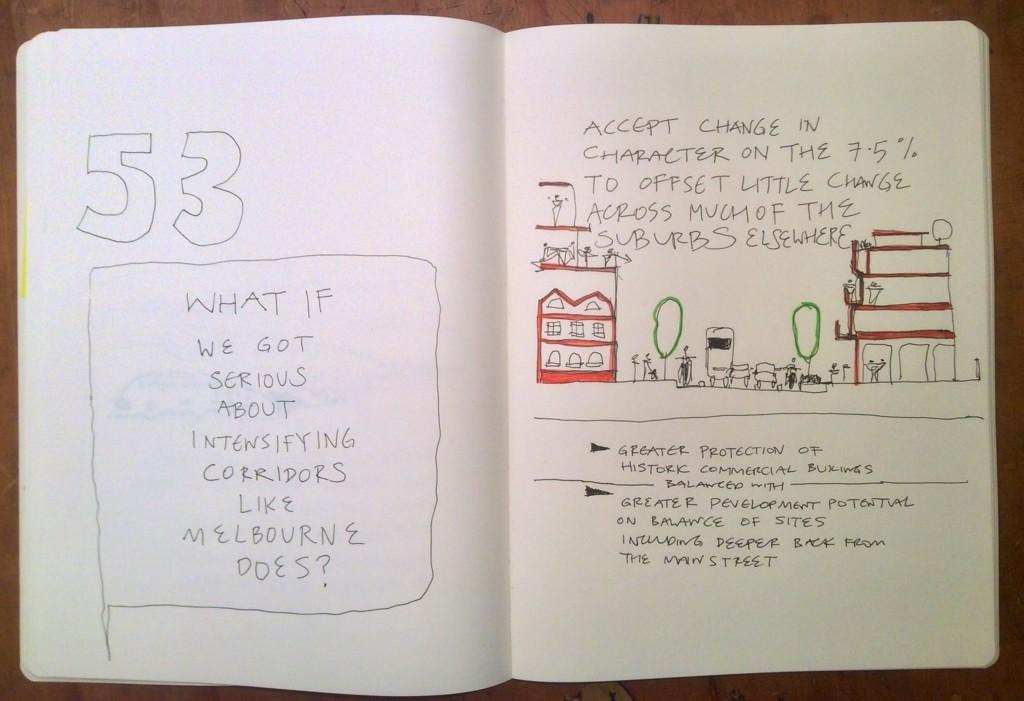 53
WHAT IF
WE GOT
SERIOUS
ABOUT
INTENSIFYING
CORRIDORS
LIKE
MELBOURNE
DOES?
ACCEPT CHANGE IN
CHARACTER ON THE 7.5%
TO OFFSET LITTLE CHANGE
ACROSS MUCH OF THE
SUBURBS ELSEWHERE
GREATER PROTECTION OF
HISTORIC COMMERCIAL BUILINGS
BALANCED WITH
GREATER DEVELOPMENT POTENTIAL
ON BALANCE OF SITES
INCLUDING DEEPER BACK FROM
THE MAIN STREET